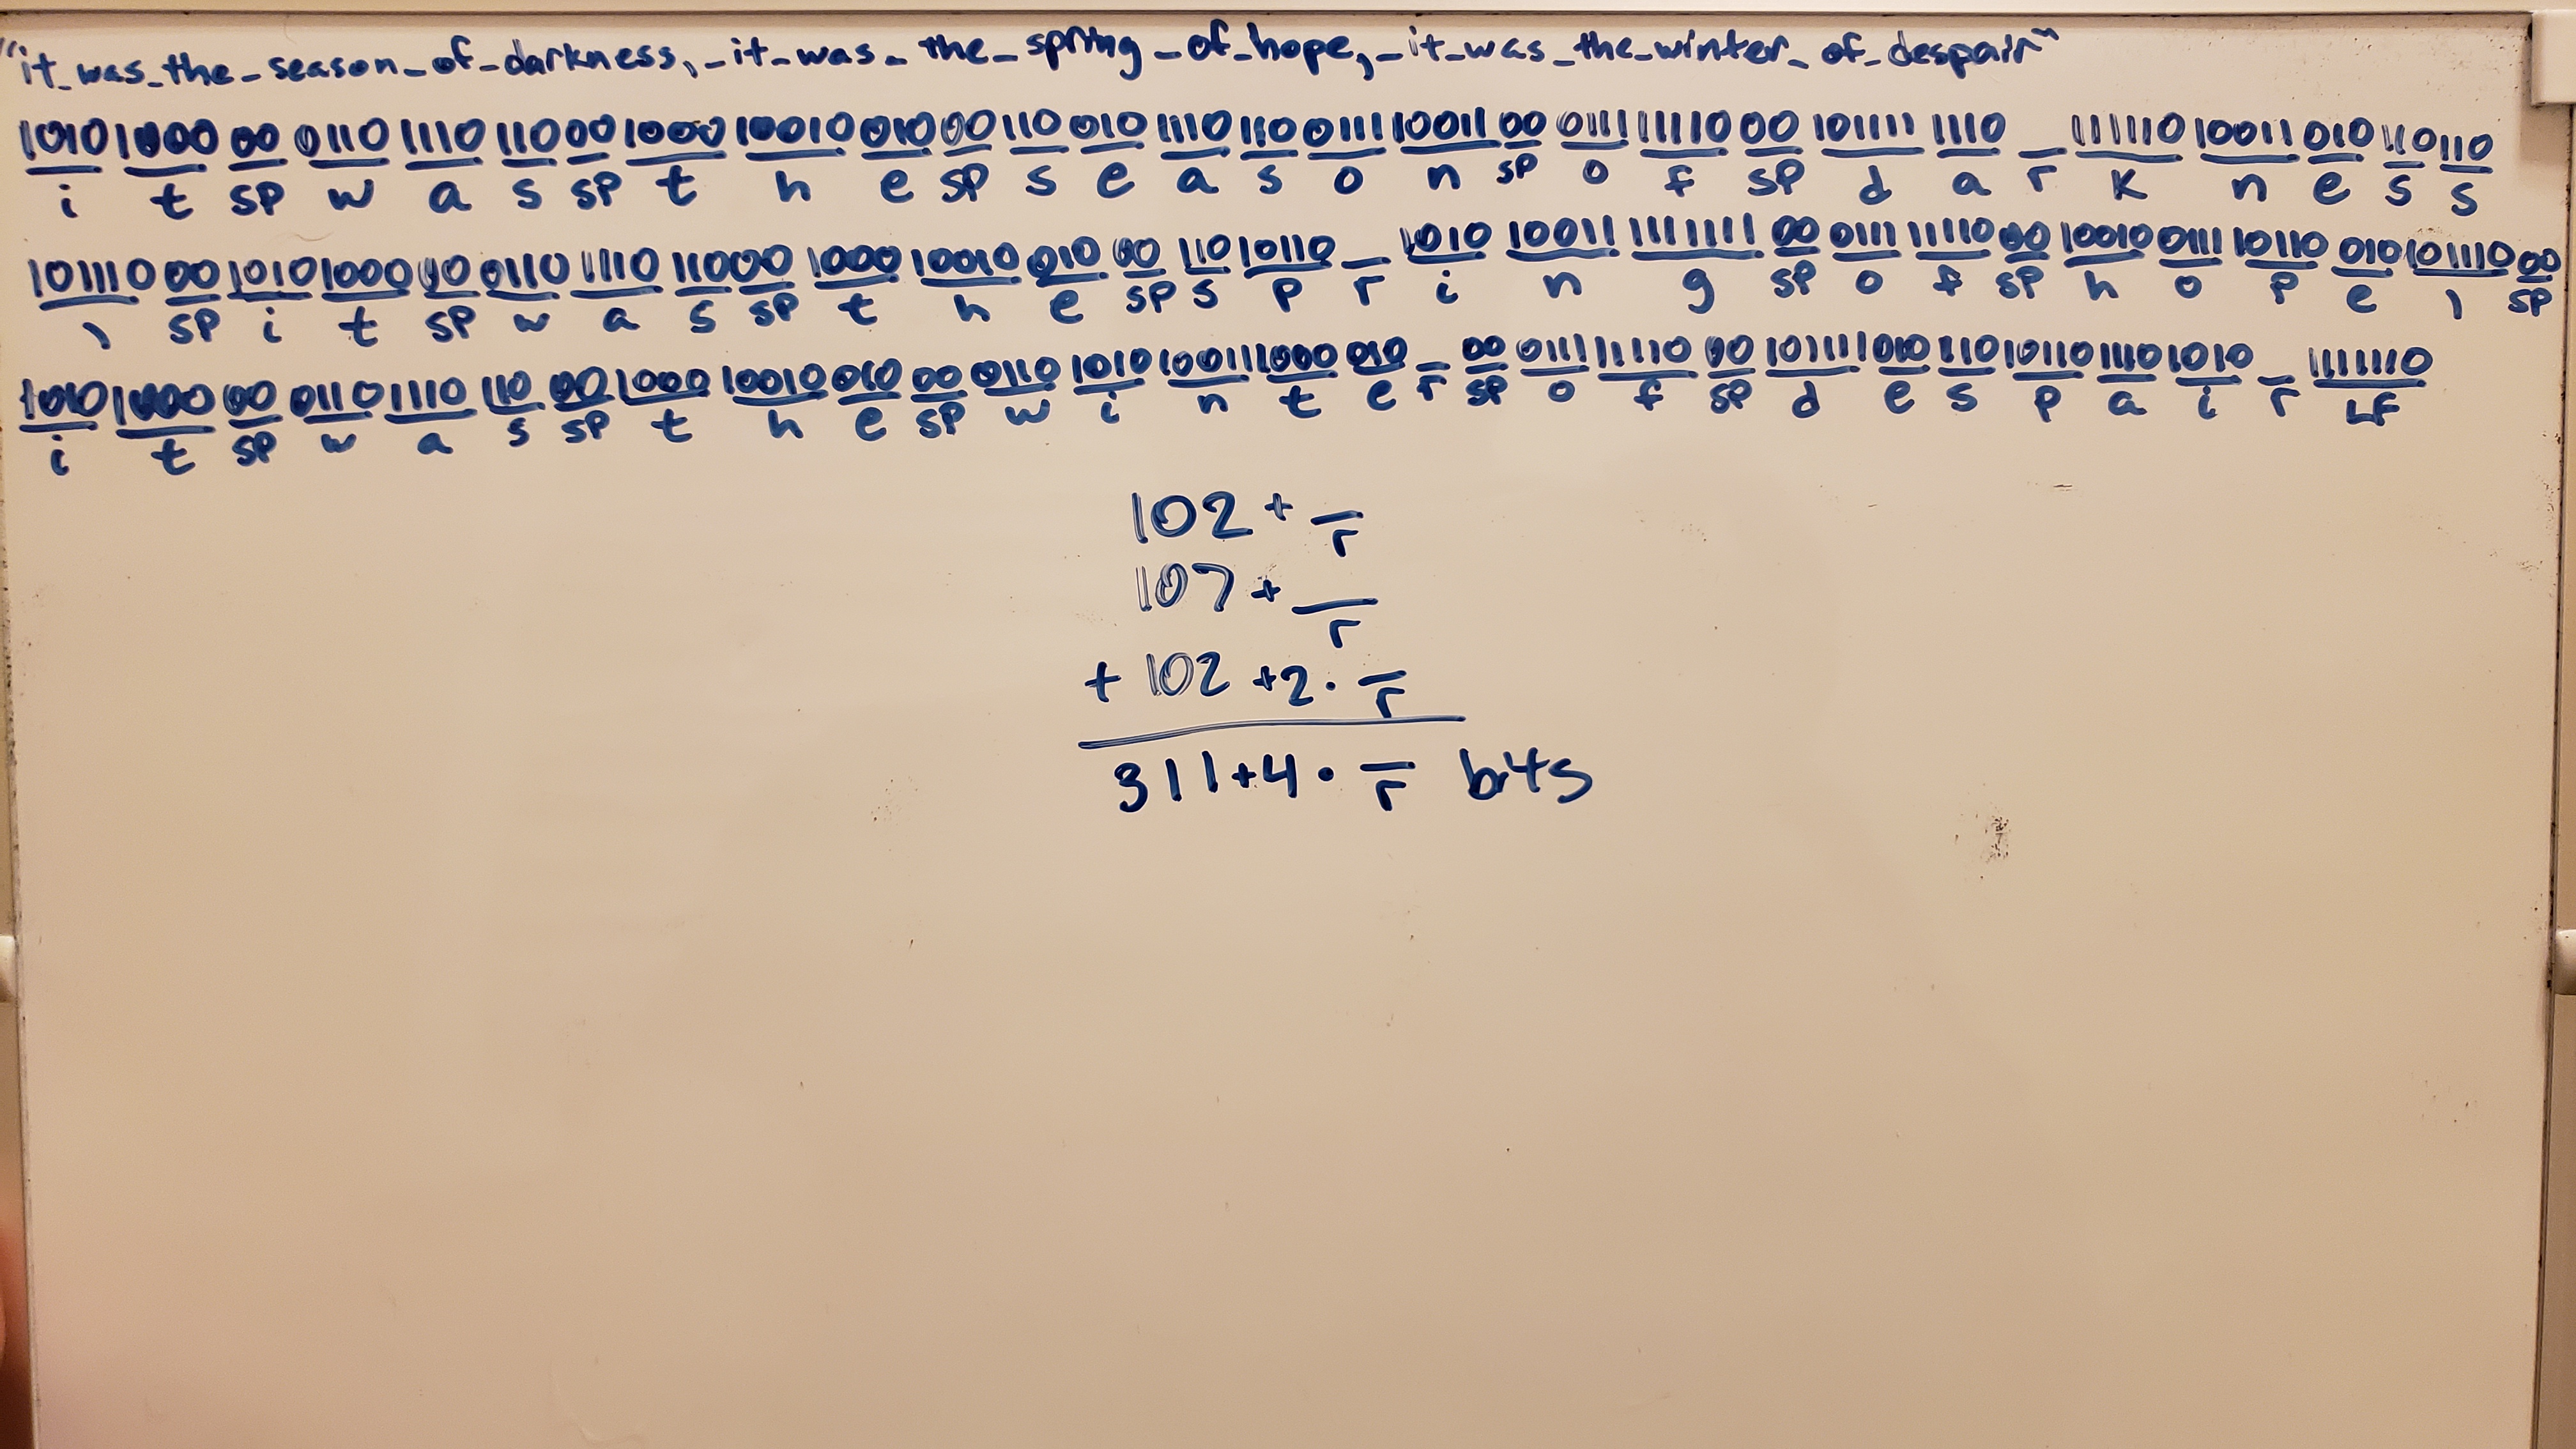 "it_was_the_season_of_darkness,_it_was_the_spring_of_hope,_it_was_the_winter_of_despair"
1010 1000 00 0110 1110 110 00 1000 10010 010 00 110 010 1110 110 0111 10011 00 0111 11110 00 101111 1110 _ 111110 10011 010 110 110
i t sp w a s sp t h e sp s e a s o n sp o f sp d a r k n e s s
101110 00 1010 1000 00 0110 1110 110 00 1000 10010 010 00 110 10110 _ 1010 10011 1111111 00 0111 11110 00 10010 0111 10110 010 101110 00
, sp i t sp w a s sp t h e sp s p r i n g sp o f sp h o p e , sp
1010 1000 00 0110 1110 110 00 1000 10010 010 00 0110 1010 10011 1000 010 _ 00 0111 11110 00 101111 010 110 10110 1110 1010 _ 1111110
i t sp w a s sp t h e sp w i n t e r sp o f sp d e s p a i r LF
102 + _
r
107 + _
r
+ 102 + 2 · _
r
311 + 4 · _ bits
r